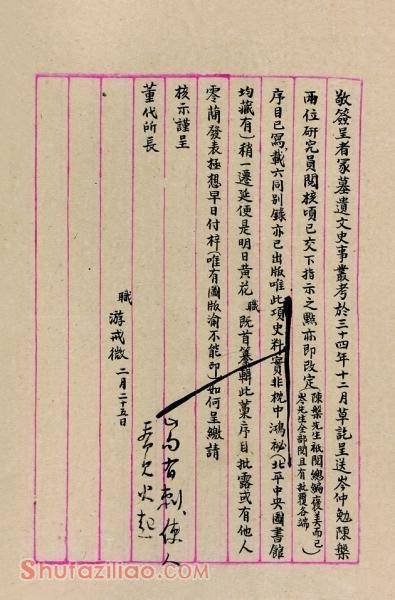 敬簽呈者冢墓遺文史事叢考於三十四年十二月草訖呈送岑仲勉陳槃
兩位研究員閱核頃已交下指示之點亦即改定(陳槃先生祗閱總編褒美而已岑先生全部閱且有批覆各端)
序目已寫載六同別錄亦已出版唯此項史料實非枕中鴻祕(北平中央圖書館
均藏有)稍一遷延便是明日黃花職既首纂輯此藁序目批露或有他人
零簡發表極想早日付梓(唯有圖版渝不能印)如何呈繳請
核示謹呈
董代所長
職 游戒微 二月二十五日
Shufaziliao.com